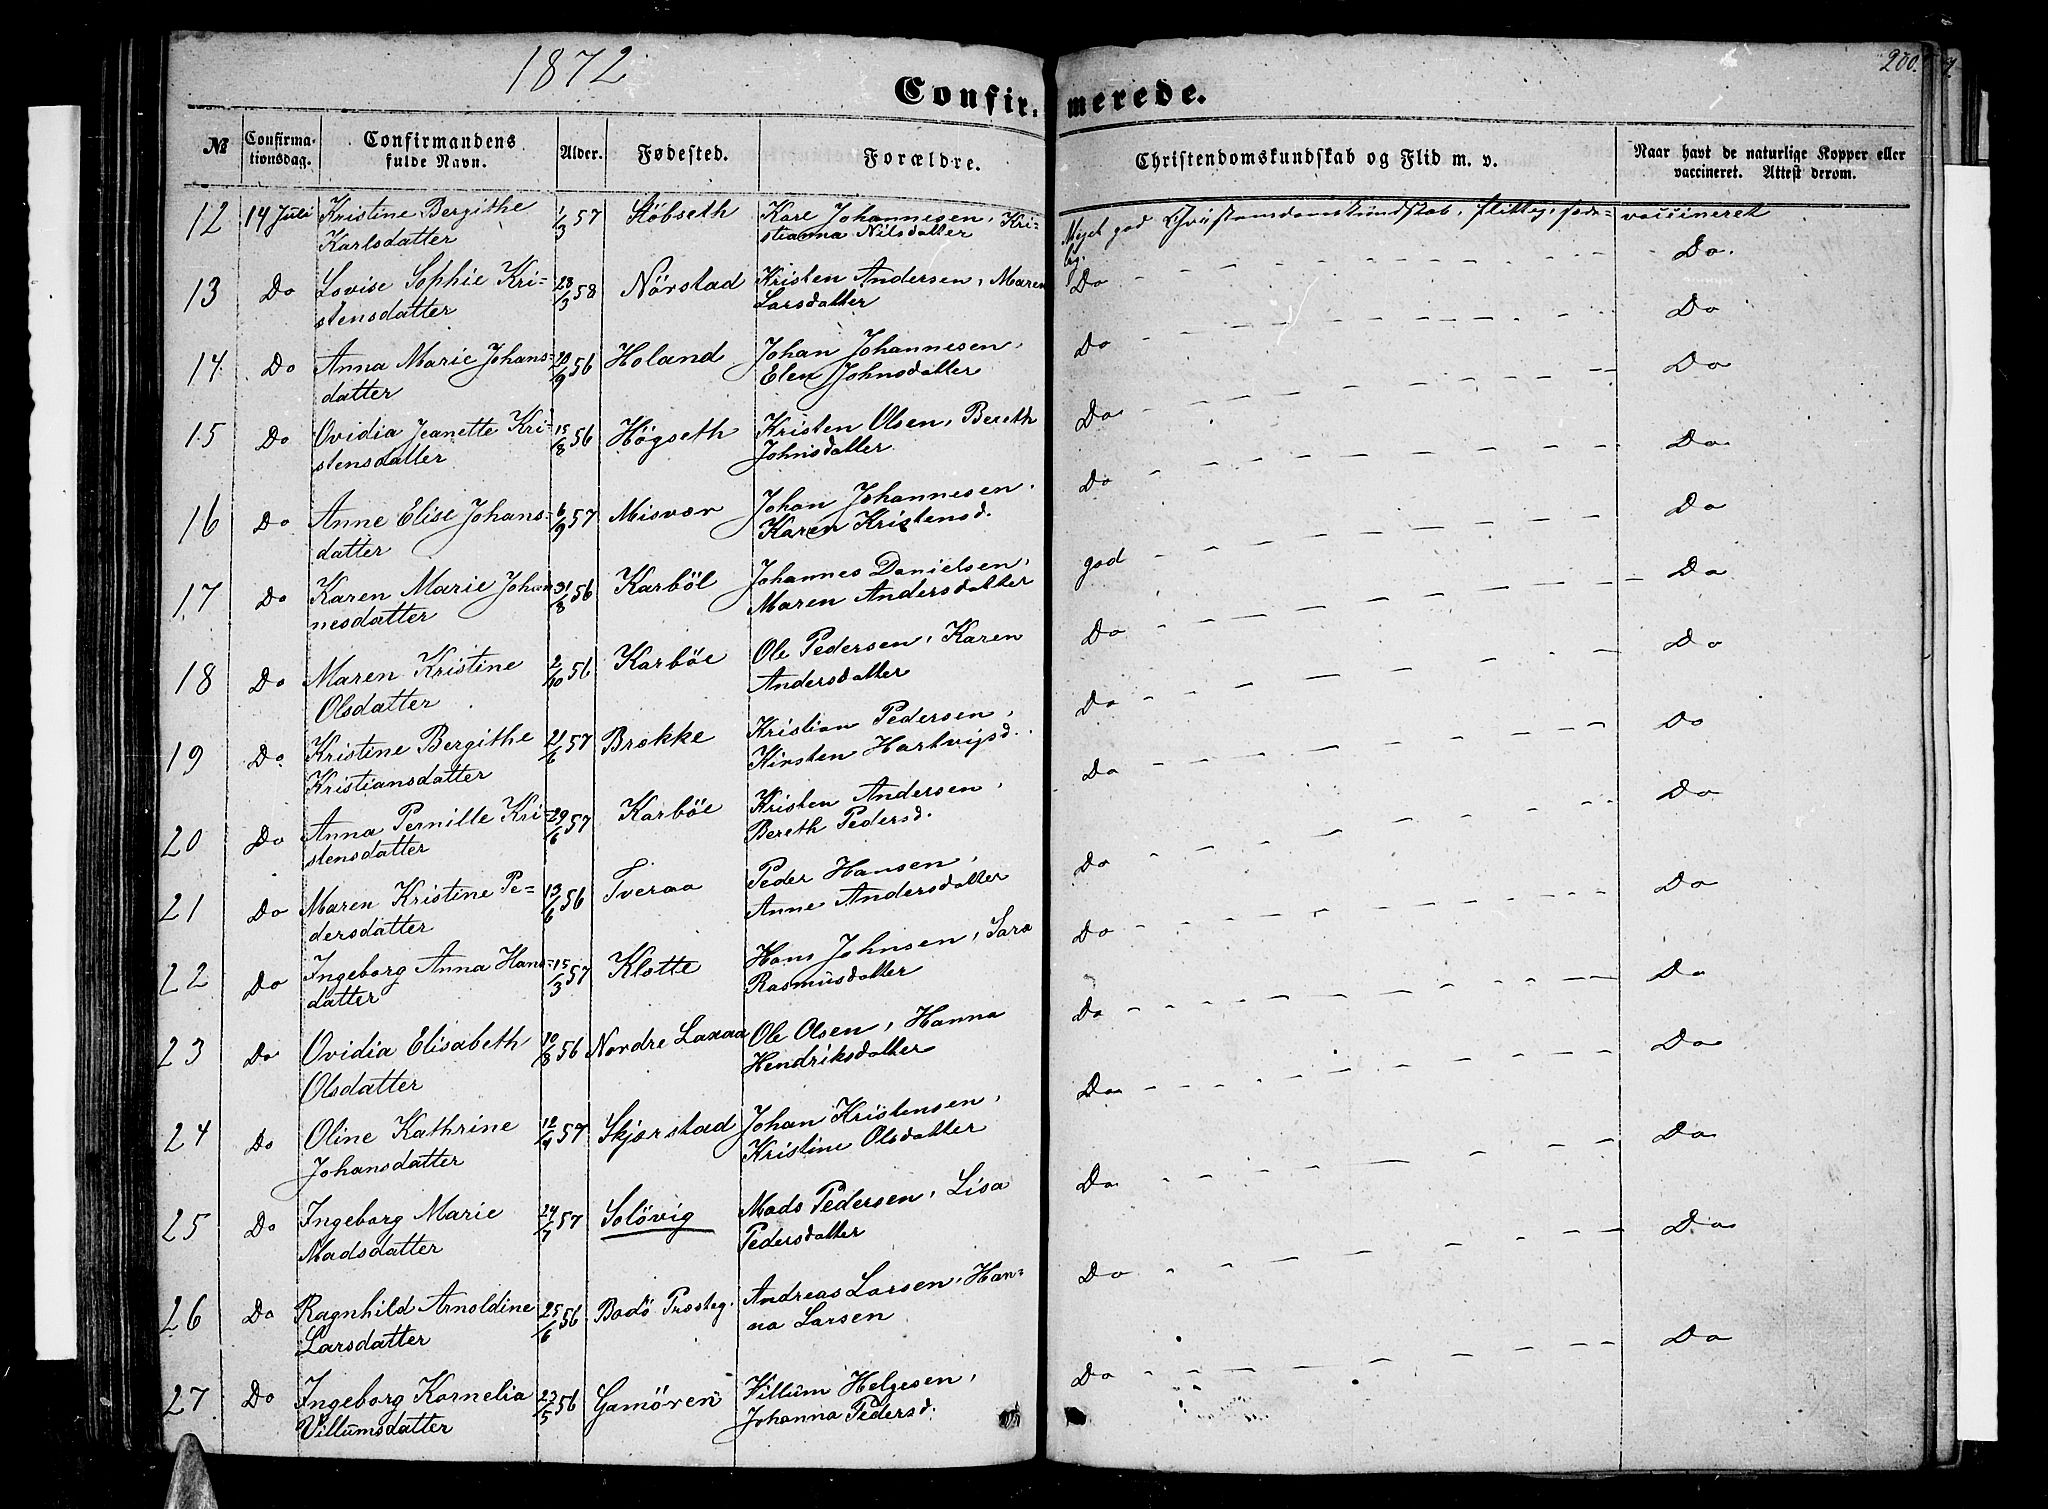 1872
200.
Confir- merede.
№ Confirma- Confirmandens Alder. Fødested. Forældre. Christendomskundskab og Flid m. v. Naar havt de naturlige Kopper eller
tionsdag. fulde Navn. vaccineret. Attest derom.
12 14 Juli Kristine Bergithe 1/3 57 Støbseth Kare Johannesen, Kri- Meget god Christendomskundskab, flittig, sæde- vaccineret
Karlsdatter stianna Nilsdatter lig.
13 Do Lovise Sophie Kri- 28/3 58 Nörstad Kristen Andersen, Maren Do - - - Do.
stensdatter Larsdatter
14. Do Anna Marie Johans- 20/9 56 Holand Johan Johannesen, Do - - - Do
datter Elen Johnsdatter
15 Do Ovidia Jeanette Kri- 15/8 56 Høgseth Kristen Olsen, Bereth Do - - - Do
stensdatter Johnsdatter
16 Do Anne Elise Johans- 6/9 57 Misvær Johan Johannesen, Do - - - Do
datter Karen Kristensd.
17 Do Karen Marie Johan- 31/8 56 Karböl Johannes Danielsen, god - - - Do
nesdatter Maren Andersdatter
18 Do Maren Kristine 2/10 56 Karböe Ole Pedersen, Karen Do - - - Do
Olsdatter Andersdatter
19 Do Kristine Bergithe 21/6 57 Brekke Kristian Pedersen, Do - - - Do
Kristiansdatter Kirsten Hartvigsd.
20 Do Anna Pernille Kri- 29/6 57 Karböe Kristen Andersen, Do - - - Do
stensdatter Bereth Pedersd.
21 Do Maren Kristine Pe- 13/6 56 Tveraa Peder Hansen, Do - - - Do
dersdatter Anne Andersdatter
22 Do Ingeborg Anna Hans- 15/3 57 Kløtte Hans Johnsen, Sara Do - - - Do
datter Rasmusdatter
23 Do Ovidia Elisabeth 10/8 56 Nordre Laxaa Ole Olsen, Hanna Do - - - Do
Olsdatter Hendriksdatter
24 Do Oline Kathrine 12/4 57 Skjærstad Johan Kristensen, Do - - - Do
Johansdatter Kristine Olsdatter
25 Do Ingeborg Marie 24/7 57 Solövig Mads Pedersen, Lisa Do - - - Do
Madsdatter Pedersdatter
26 Do Ragnhild Arnoldine 25/6 56 Bodö Præsteg. Andreas Larsen, Han- Do - - - Do
Larsdatter na Larsen
27 Do Ingeborg Kornelia 23/5 56 Gamören Villum Helgesen, Do - - - Do
Villumsdatter Johanna Pedersd.